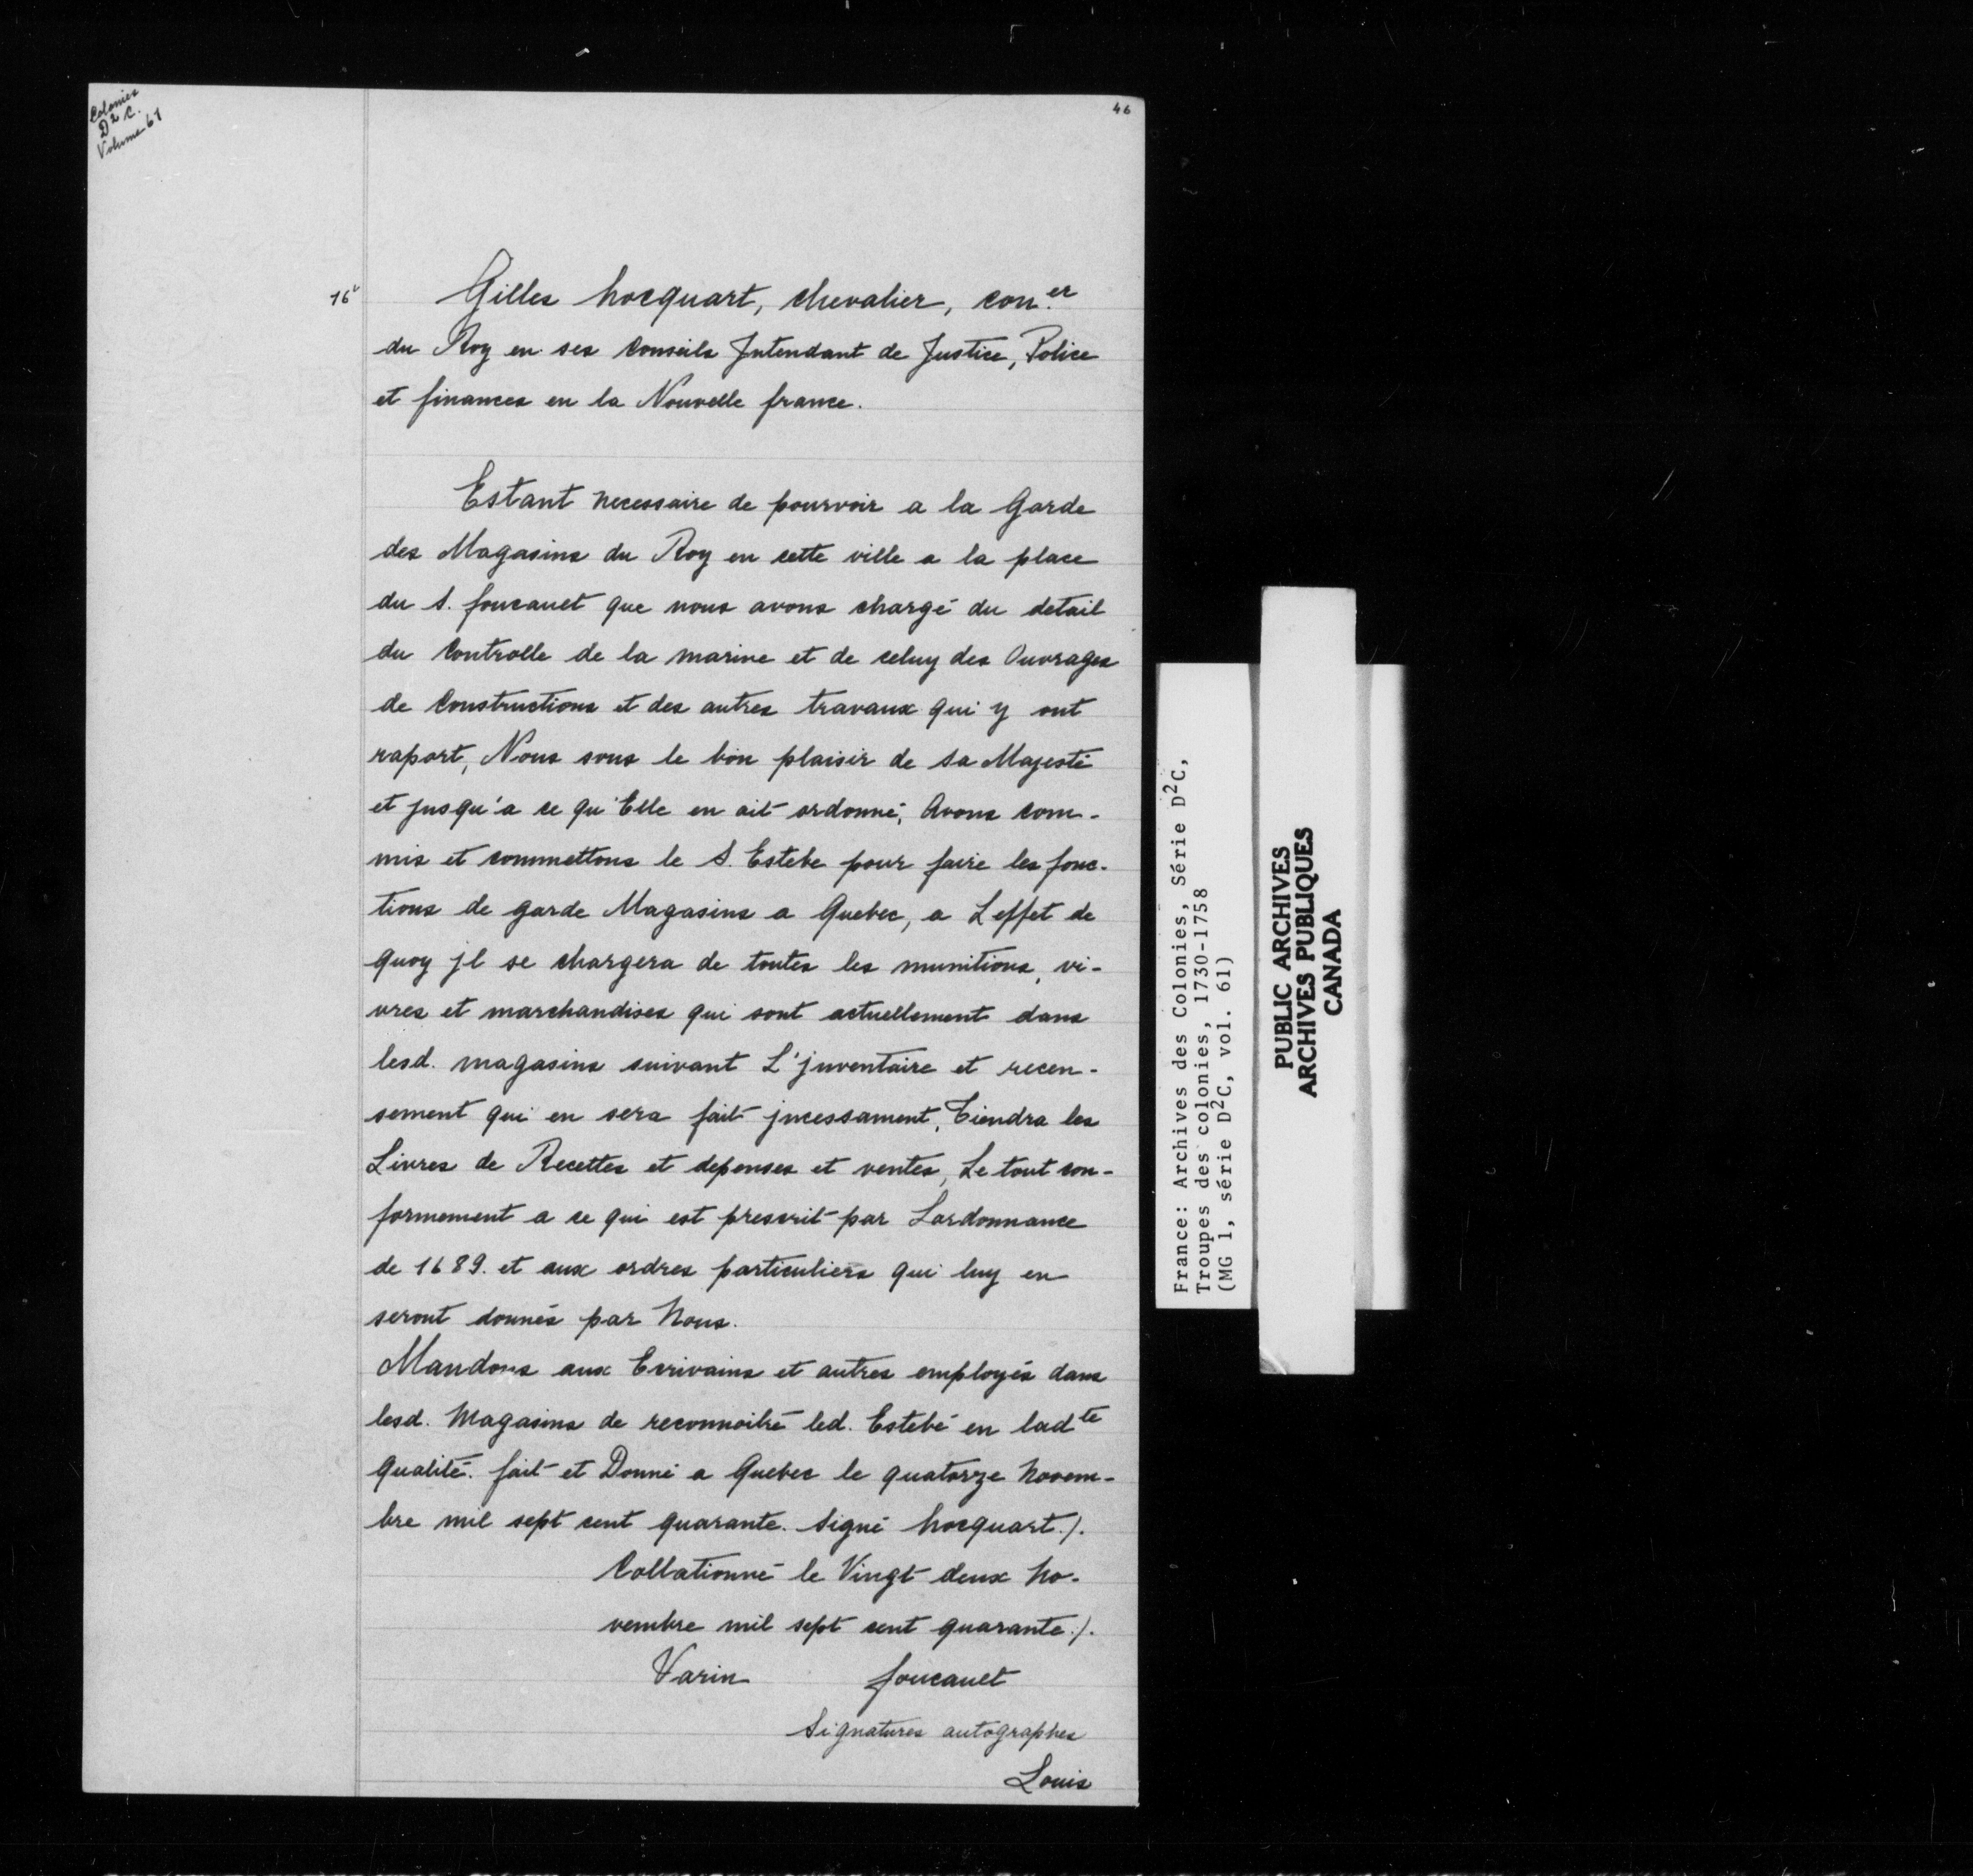 Colonies
D2 C.
Volume 61
46
16v
Gilles hocquart, chevalier, con.er
du Roy en ses Conseils Jntendant de Justice, Police
et finances en la Nouvelle france.
Estant necessaire de pourvoir a la Garde
des Magasins du Roy en cette ville a la place
du S. foucault que nous avons chargé du detail
du Controlle de la marine et de celuy des Ouvrages
de Constructions et des autres travaux qui y ont
raport, Nous sous le bon plaisir de sa Majesté
et jusqu'a ce qu'Elle en ait ordonné, Avons com-
mis et commettons le S. Estebe pour faire les fonc-
tions de garde Magasins a Quebec, a Leffet de
quoy jl se chargera de toutes les munitions, vi-
vres et marchandises qui sont actuellement dans
lesd. magasins suivant L'jnventaire et recen-
sement qui en sera fait jncessament, Tiendra les
Livres de Recettes et depenses et ventes, Le tout con-
formement a ce qui est prescrit par Lordonnance
de 1689. et aux ordres particuliers qui luy en
seront donnés par Nous.
Mandons aux Ecrivains et autres employés dans
lesd. Magasins de reconnoitre led. Estebé en ladte
qualité. fait et Donné a Quebec le quatorze Novem-
bre mil sept cent quarante. Signé hocquart./.
Collationné le Vingt deux No-
vembre mil sept cent quarante./.
Varin foucault
Signatures autographes
Louis
France: Archives des Colonies, Série D2C,
Troupes des colonies, 1730-1758
(MG 1, série D2C, vol. 61)
PUBLIC ARCHIVES
ARCHIVES PUBLIQUES
CANADA